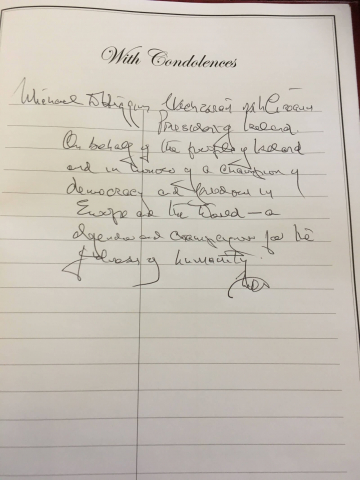 With Condolences
Michael D Higgins Uachtarán na hÉireann
President of Ireland
On behalf of the people of Ireland
and in honour of a champion of
democracy and freedom in
Europe and the World – a
defender and campaigner for the
of humanity